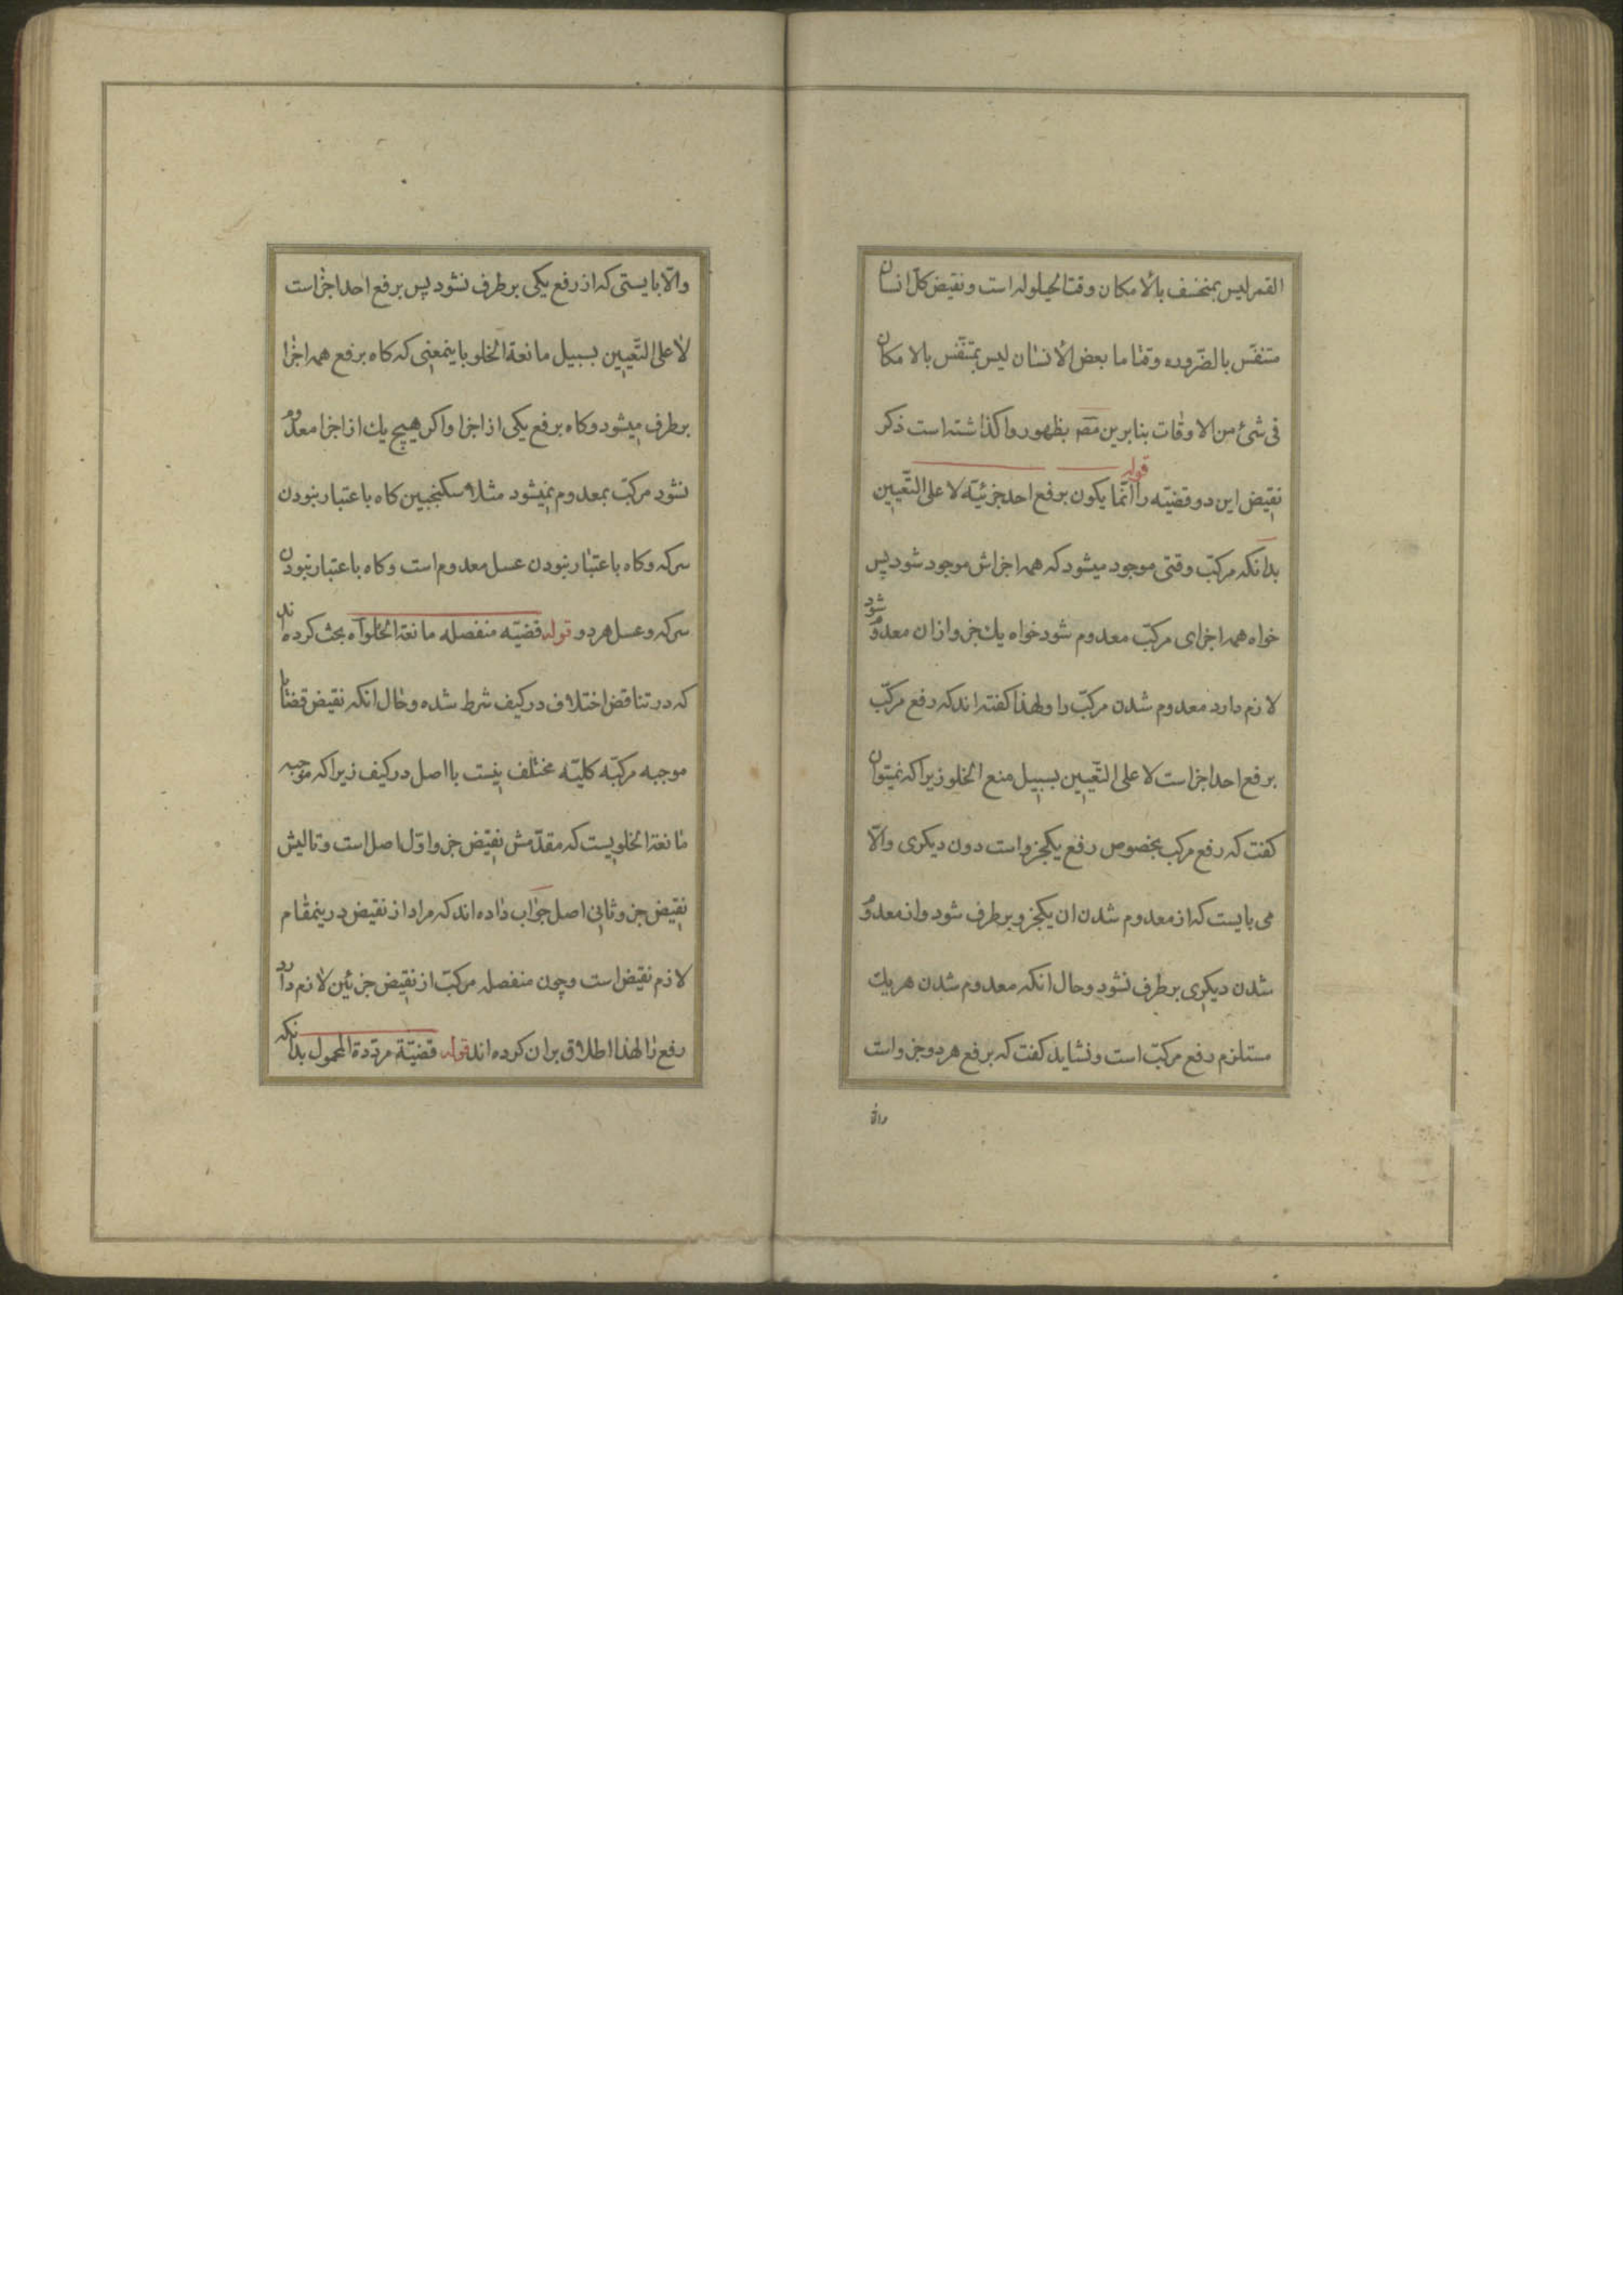 القمر لیس بمنخسف بالامکان وقت الحیلوله است و نقیض کلّ انسان
متنفّس بالضّروره وقتا ما بعض الانسان لیس بمتنفّس بالامکان
فی شیٔ من الاوقات بنابرین مصـ بظهور واکذاشته است ذکر
نقیض این دو قضیّه را قوله انّما یکون برفع احد جزئیّه لا علی التّعیین
بدانکه مرکّب وقتی موجود میشود که همه اجزاش موجود شود پس
خواه همه اجزای مرکّب معدوم شود خواه یك جزو از ان معدوم شود
لازم دارد معدوم شدن مرکّب را و لهذا کفته اند که رفع مرکّب
برفع احد اجزاست لا علی التّعیین بسبیل منع الخلو زیرا که نمیتوان
کفت که رفع مرکب بخصوص رفع یکجزو است دون دیکری والّا
می بایست که از معدوم شدن ان یکجزو برطرف شود و از معدوم
شدن دیکری برطرف نشود و حال انکه معدوم شدن هر یك
مستلزم رفع مرکّب است و نشاید کفت که برفع هر دو جزو است
والّا
والّا بایستی که از رفع یکی برطرف نشود پس برفع احد اجزاست
لا علی التّعیین بسبیل مانعة الخلو باینمعنی که کاه برفع همه اجزا
برطرف میشود و کاه برفع یکی از اجزا و اکر هیچ یك از اجزا معدوم
نشود مرکّب معدوم نمیشود مثلا سکنجبین کاه باعتبار نبودن
سرکه و کاه باعتبار نبودن عسل معدوم است و کاه باعتبار نبودن
سرکه و عسل هر دو قوله قضیّه منفصله مانعة الخلو آه بحث کرده اند
که در تناقض اختلاف در کیف شرط شده و حال انکه نقیض قضایا
موجبه مرکبّه کلیّه مختلف نیست با اصل در کیف زیرا که موجبه
مانعة الخلویست که مقدّمش نقیض جزو اوّل اصل است و تالیش
نقیض جزو ثانی اصل جواب داده اند که مراد از نقیض درینمقام
لازم نقیض است و چون منفصله مرکّب از نقیض جزئین لازم دارد
رفع را لهذا اطلاق بران کرده اند قوله قضیّة مردّدة المحمول بدانکه